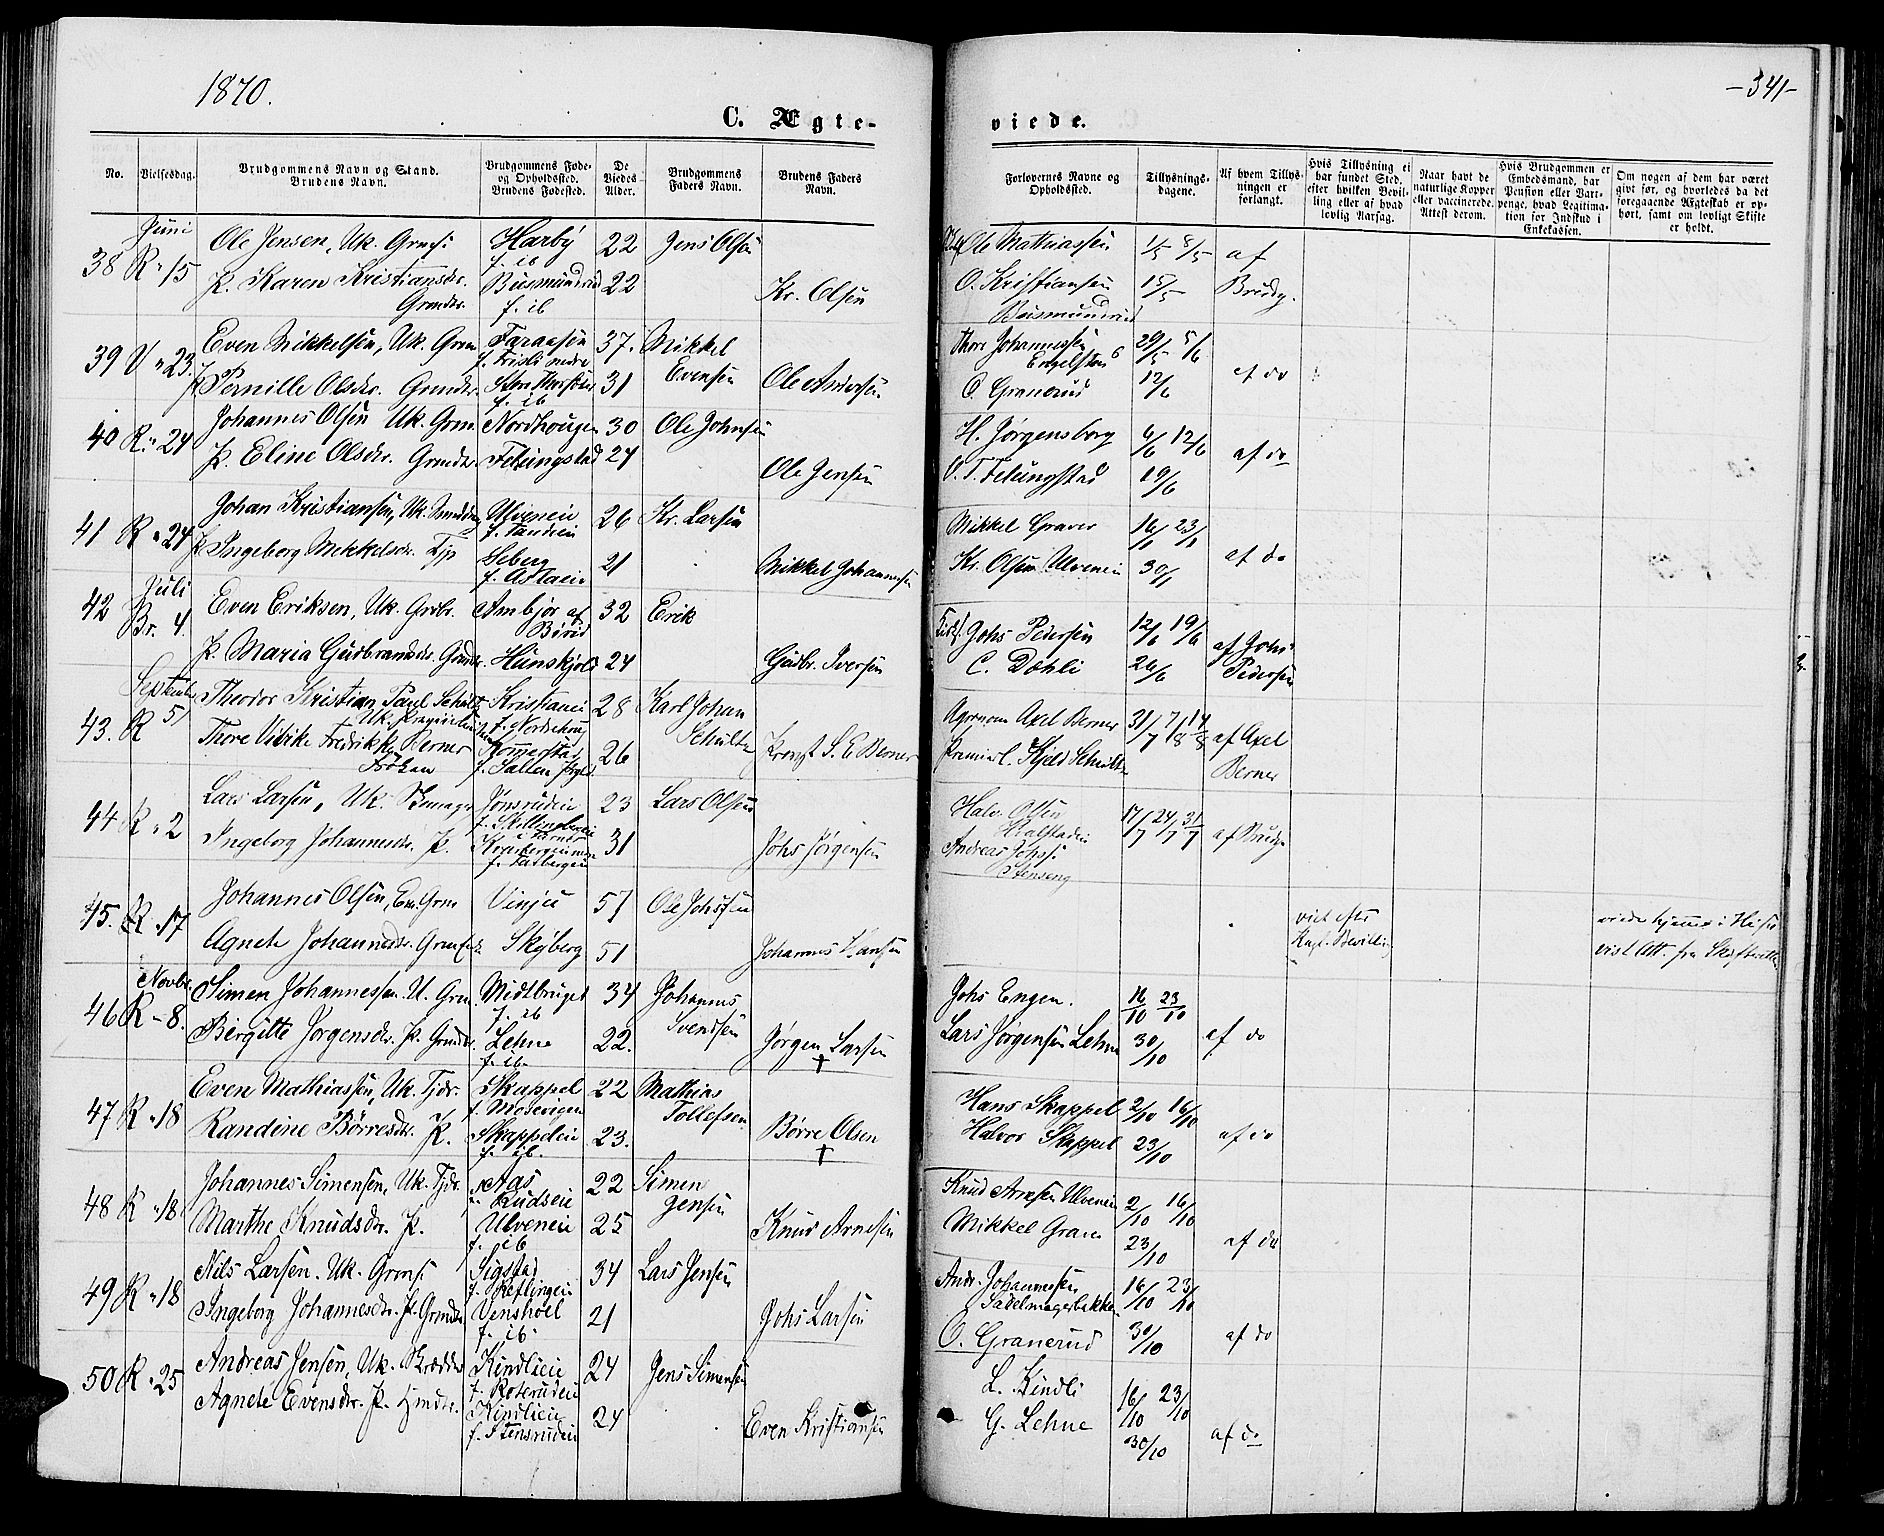 1870.
-341-
C. Ægte-
viede.
No.
Vielsesdag.
Brudgommens Navn og Stand.
Brudens Navn.
Brudgommens Føde-
og Opholdssted.
Brudens Fødested.
De
Viedes
Alder.
Brudgommens
Faders Navn.
Brudens Faders
Navn.
Forlovernes Navne og
Opholdssted.
Tillysnings-
dagene.
Af hvem Tillys-
ningen er
forlangt.
Hvis Tillysning ei
har fundet Sted,
efter hvilken Bevil-
ling eller af hvad
lovlig Aarsag.
Naar havt de
naturlige Kopper
eller vaccinerede.
Attest derom.
Hvis Brudgommen er
Embedsmand, har
Pension eller Var-
penge, hvad Legitima-
tion for Indskud i
Enkekassen.
Om nogen af dem har været
gift før, og hvorledes da det
foregaaende Ægteskab er op-
hørt, samt om lovligt Skifte
er holdt.
Juni
38 R " 15 Ole Jensen, Uk. Grmsø Harby 22 Jens Olsen Ole Mathiassen 1/5 8/5 af
f. ib
P. Karen Kristiansdr. Busmundrud 22 Kr. Olsen O. Kristiansen 15/5 Brudg.
Grmdr. f. ib Busmundrud
39 U " 23. Even Mikkelsen, Uk. Grm Faraasen 37. Mikkel Evensen Thore Johannessen 29/5 5/6
f. Frisli nedre Engelstad
P. Pernille Olsdr. Grmdr. 31 Ole Andersen O. Granerud 12/6 af do
f. ib
40 R. " 24 Johannes Olsen Uk. Grm. Nordhougen 30 Ole Johnsen H. Jørgensborg 6/6 12/6 af do
P. Eline Olsdr. Grmdr. Felungstad 24 Ole Jensen O. T. Felungstad 19/6
41 R " 24 Johan Kristiansen, Uk. Ulveneie 26 Kr. Larsen Mikkel Graver 16/ 23/ af do
P. Ingeborg Mikkelsdr. Tjp Seberg 21 Mikkel Johannesen Kr. Olsen Ulveneie 30/
Juli
42 Br. 4. Even Eriksen, Uk. Grdbr. Ambjør af 32 Erik Johs Pedersen 12/6 19/6 af Johs
Birid
P. Maria Gudbrandsdr. Grmdr. Hunskjold 24 Gudbr. Iversen C. Dæhli 26/6 Pedersen
September
43. R 5/ Theodor Kristian Paul Schultz Kristiania 28 Karl Johan Schultz Agronom Axel Berner 31/7 7/8 14/8 af Axel
Thore Vibike Fredrikke Berner 26 S. E. Berner Premierl. Kjeld Schultz Berner
Frøken
44 R " 2 Lars Larsen, Uk. Skomager Jønsrudeie 23 Lars Olsen Halv. Olsen 17/7 24/7 31/7 af Brudg.
Ingeborg Johannesdr. P. 31 Johs Jørgensen Andreas Johs:
Stenseng
45. R " 17 Johannes Olsen, Em. Grm Vinjeie 57 Ole Johsen viet efter
Agnete Johannesdr. Skyberg 51 Johannes Hansen Kgl. Bevilling
viede hjemme i Huset
vist Att. fra Skifteretten
Novbr.
46 R - 8. Simen Johannessen. U. Grm. Midtbruget 34 Johannes Svendsen Johs Engen. 16/10 23/10 af do
f. ib
Birgitte Jørgensdr. P. Grmdr. Lehne 22. Jørgen Larsen † Lars Jørgensen Lehne 30/10
f. ib
47 R " 18 Even Mathiassen, Uk. Tjdr. Skappel 22 Mathias Tollefsen Hans Skappel 2/10 16/10
f. Mosevigen
Randine Børresdr. P. Skappeleie 23. Børre Olsen † Halvor Skappel 23/10 af do
f. ib.
48 R " 18 Johannes Simensen, Uk. Tjdr. Aas 22 Simen Jensen Knud Arnesen Ulveneie 2/10 16/10
f. Rudseie
Marthe Knudsdr. P. Ulveneie 25 Knud Arnesen Mikkel Graver 23/10 af do
f. ib
49 R " 18 Nils Larsen. Uk. Grmsø Sigstad 34 Lars Jensen Andr. Johannesen 16/10 23/10
f. Ketlingeie Sadelmagerbakken
Ingeborg Johannesdr. P. Grmdr. Venshoel 21 Johs Larsen O. Granerud 30/10 af do
f. ib.
50 R " 25 Andreas Jensen, Uk. Skrædder Kindlieie 24 Jens Simensen L. Kindli 16/10 23/10
f. Roterudeie
Agnete Evensdr. P. Hmdr. Kindlieie 24 Even Kristiansen G. Lehne 30/10 af do
f. Stensrudeie